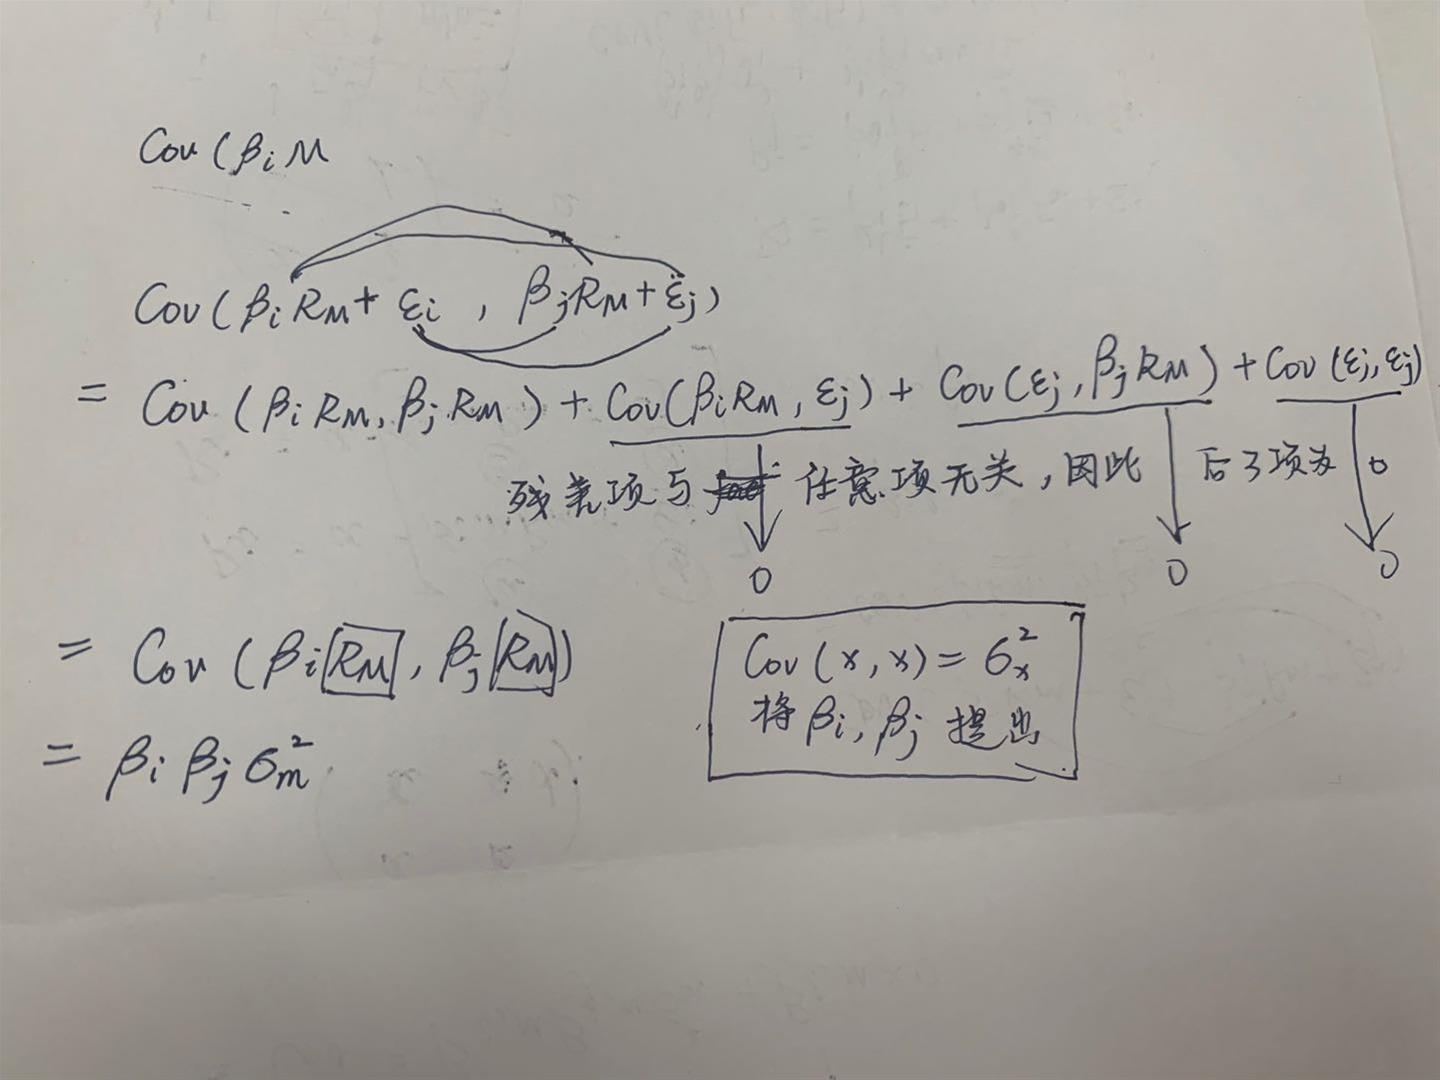 Cov(βiM
Cov(βiRM+εi, βjRM+εj)
= Cov(βiRM, βjRM)+Cov(βiRM, εj)+Cov(εj, βjRM)+Cov(εj, εj)
残差项与 任意项无关,因此 后3项为0
0 0 0
= Cov(βiRM, βjRM)
Cov(x,x)=σx²
将βi, βj提出
= βiβjσm²